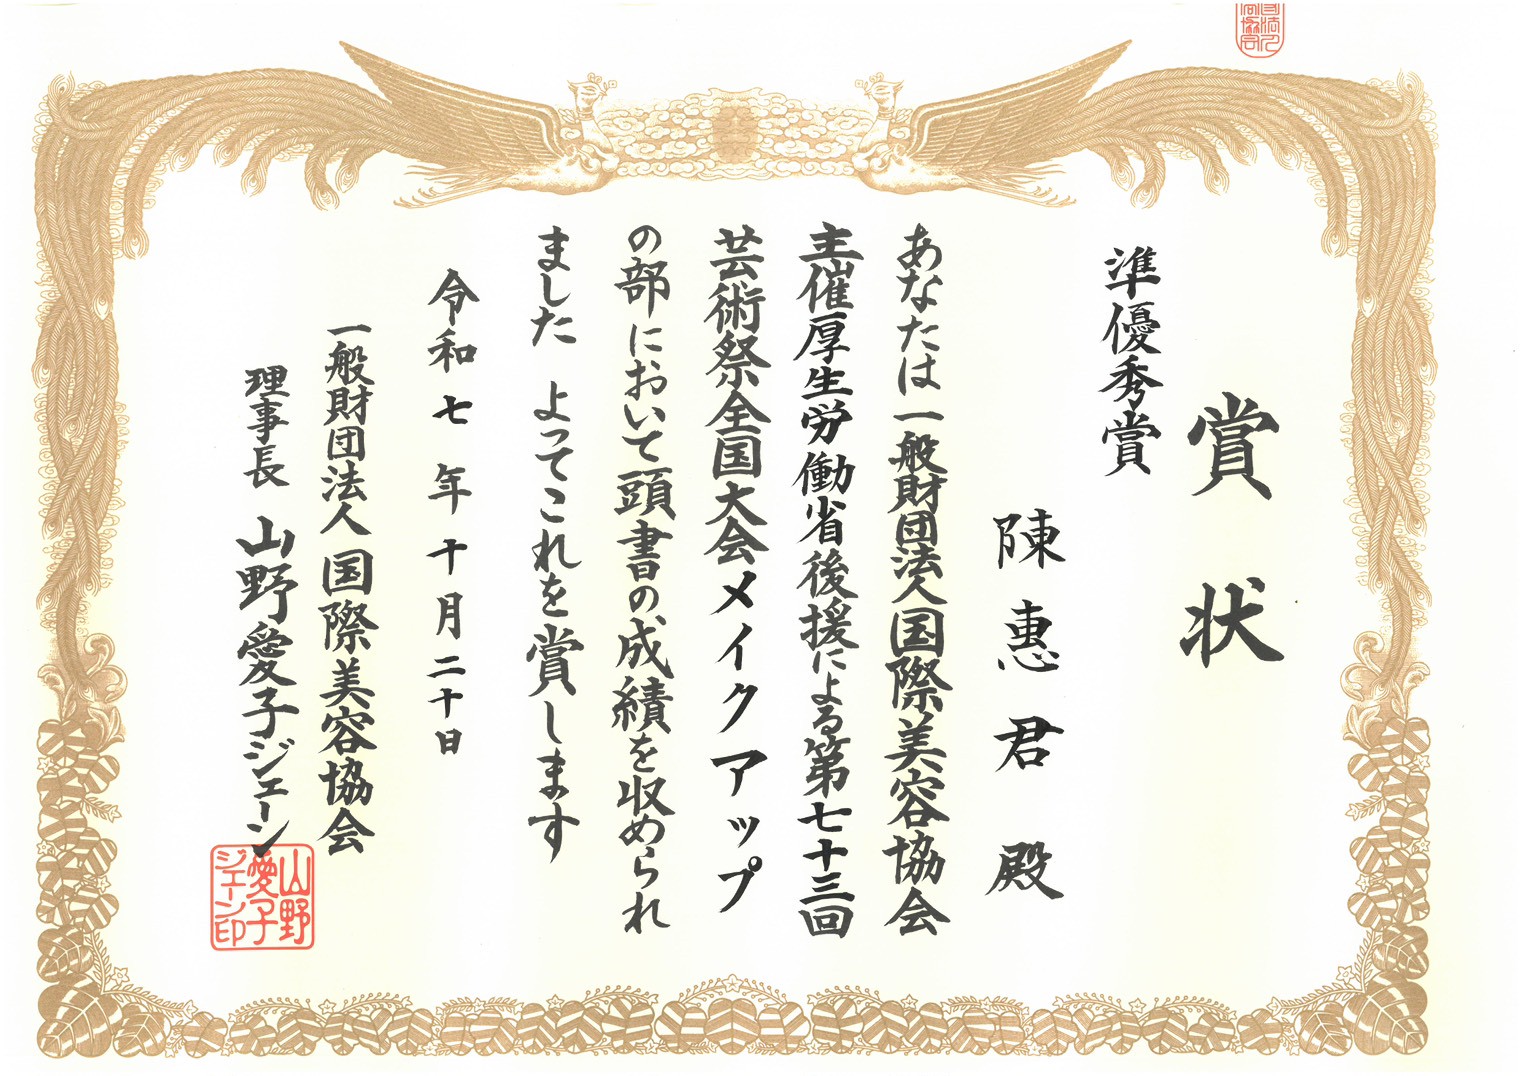 賞状
準優秀賞
陳惠君殿
あなたは一般財団法人国際美容協会
主催厚生労働省後援による第七十三回
芸術祭全国大会メイクアップ
の部において頭書の成績を収められ
ました よってこれを賞します
令和七年十月二十日
一般財団法人国際美容協会
理事長 山野愛子ジェーン
山野
愛子
ジェーン印